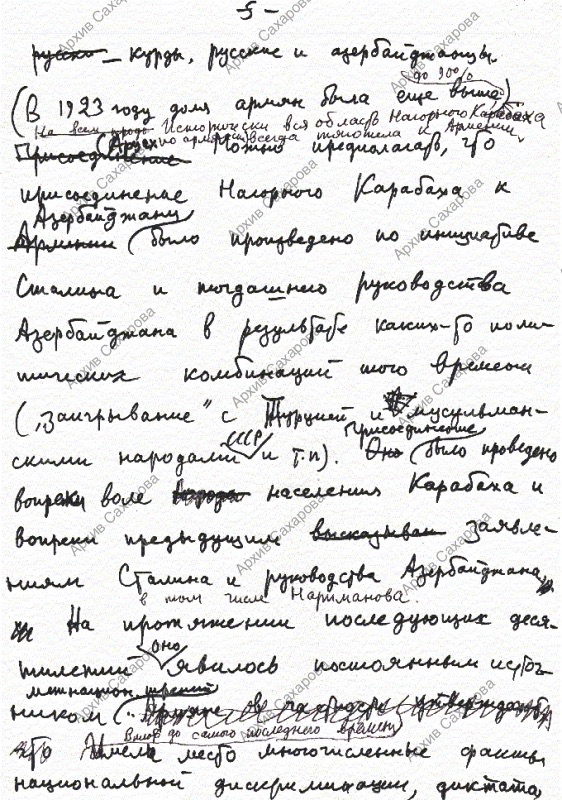 -5-
русско – курды, русские и азербайджанцы.
до 90%
(В 1923 году доля армян была еще выше)
Исторически вся область Нагорного Карабаха
(Арцах по армянски) всегда тяготела к Армении.
Присоединение Можно предполагать, что
присоединение Нагорного Карабаха к
Азербайджану
Армении было произведено по инициативе
Сталина и тогдашнего руководства
Азербайджана в результате каких-то поли-
тических комбинаций того времени
(„заигрывание" с Турцией и мусульман-
скими народами СССР и т.п). Присоединение
Оно было проведено
вопреки воле народа населения Карабаха и
вопреки предыдущим высказыван заявле-
ниям Сталина и руководства Азербайджана,
в том числе Нариманова.
На протяжении последующих деся-
тилетий оно явилось постоянным источ-
ником межнацион. трений
Вплоть до самого последнего времени
что Имели место многочисленные факты
национальной дискриминации, диктата
Архив Сахарова